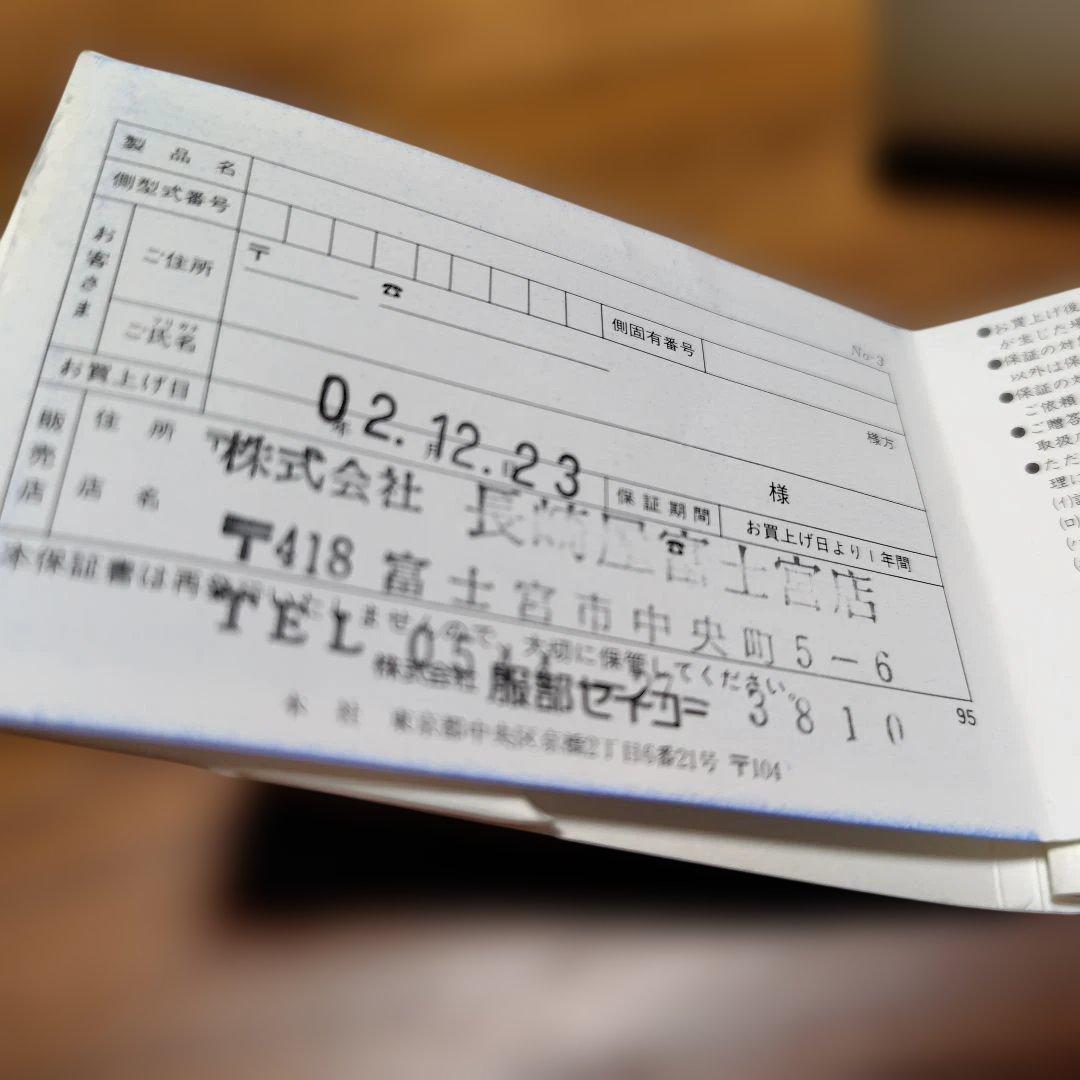 No-3
製品名
側型式番号
側固有番号
お客さま
ご住所
〒
☎
様方
フリガナ
ご氏名
様
お買上げ日
年 月 日
02.12.23
保証期間
お買上げ日より1年間
販売店
住所
店名
〒
☎
株式会社 長崎屋富士宮店
〒418 富士宮市中央町5-6
TEL 05
3810
本保証書は再発行いたしませんので、大切に保管してください。
株式会社 服部セイコー
本社 東京都中央区京橋2丁目6番21号 〒104
95
●お買上げ後
が生じた場
●保証の対象
以外は保
●保証の対
ご依頼
●ご贈答
取扱
●ただ
理に
(イ)
(ロ)